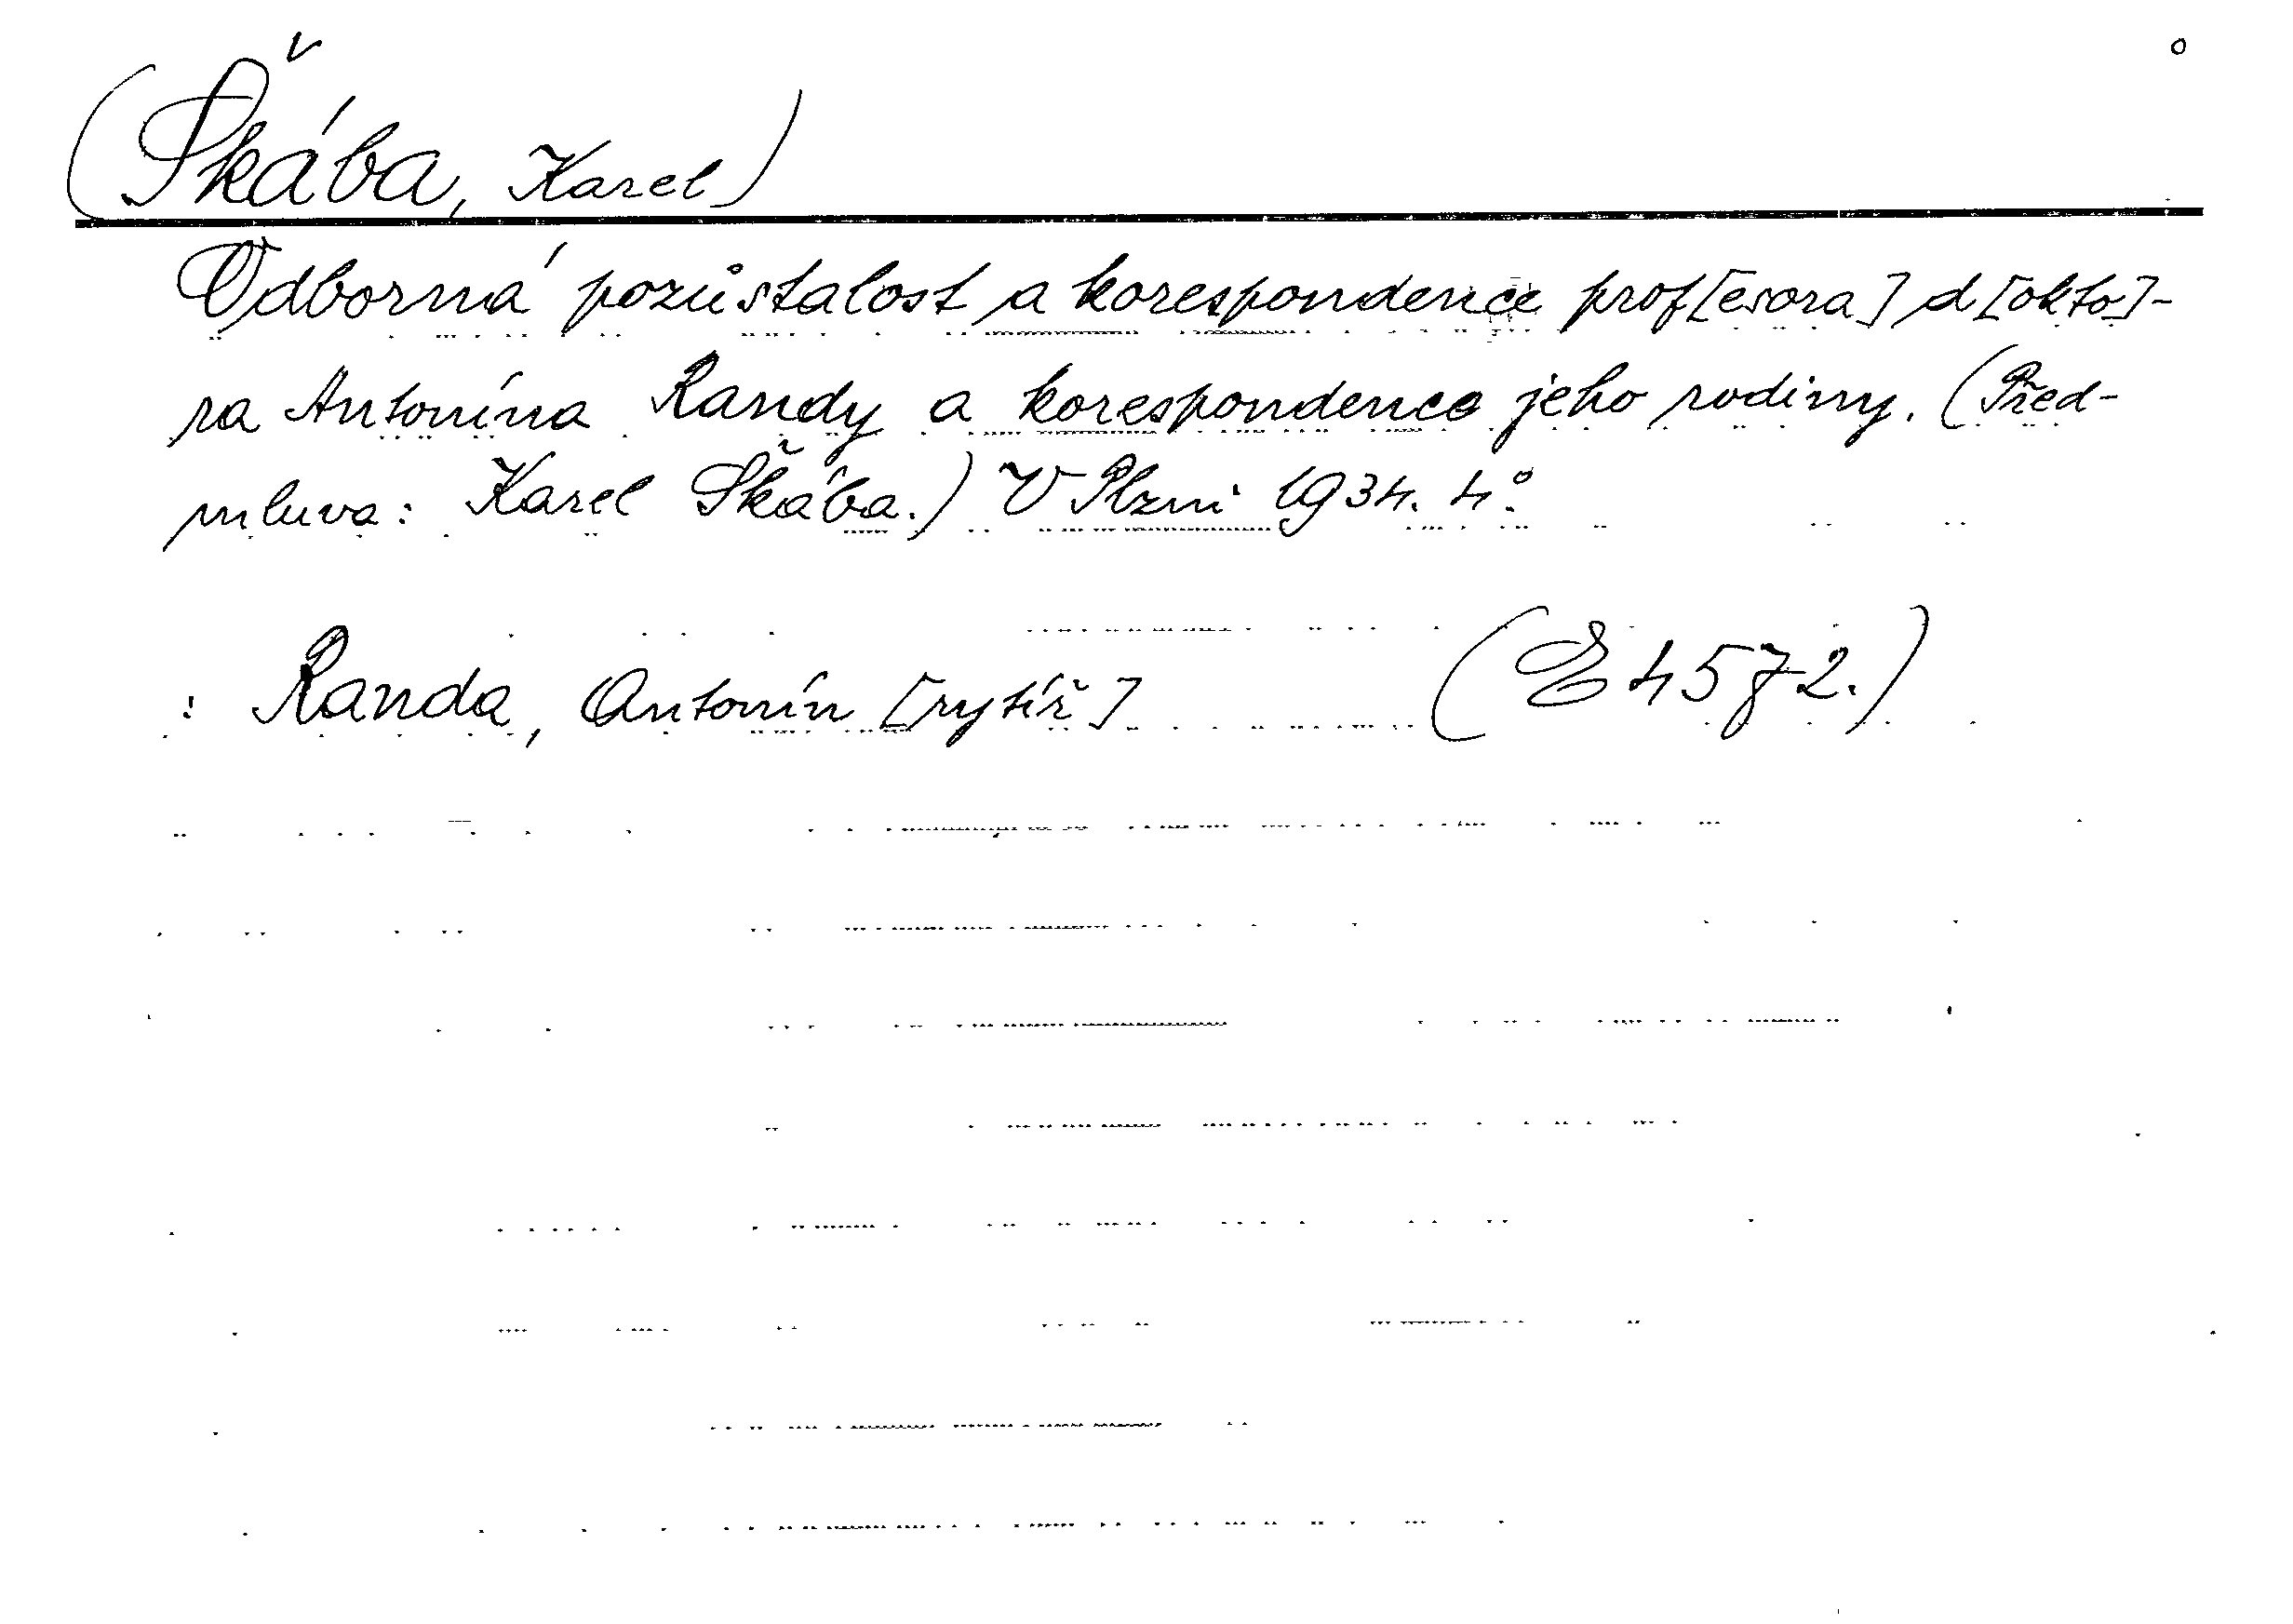 (Škába, Karel)
Odborná pozůstalost a korespondence prof[esora] d[okto]-
ra Antonína Randy a korespondence jeho rodiny. (Před-
mluva: Karel Škába.) V Plzni 1934. 4°.
: Randa, Antonín [rytíř] (E 4572.)